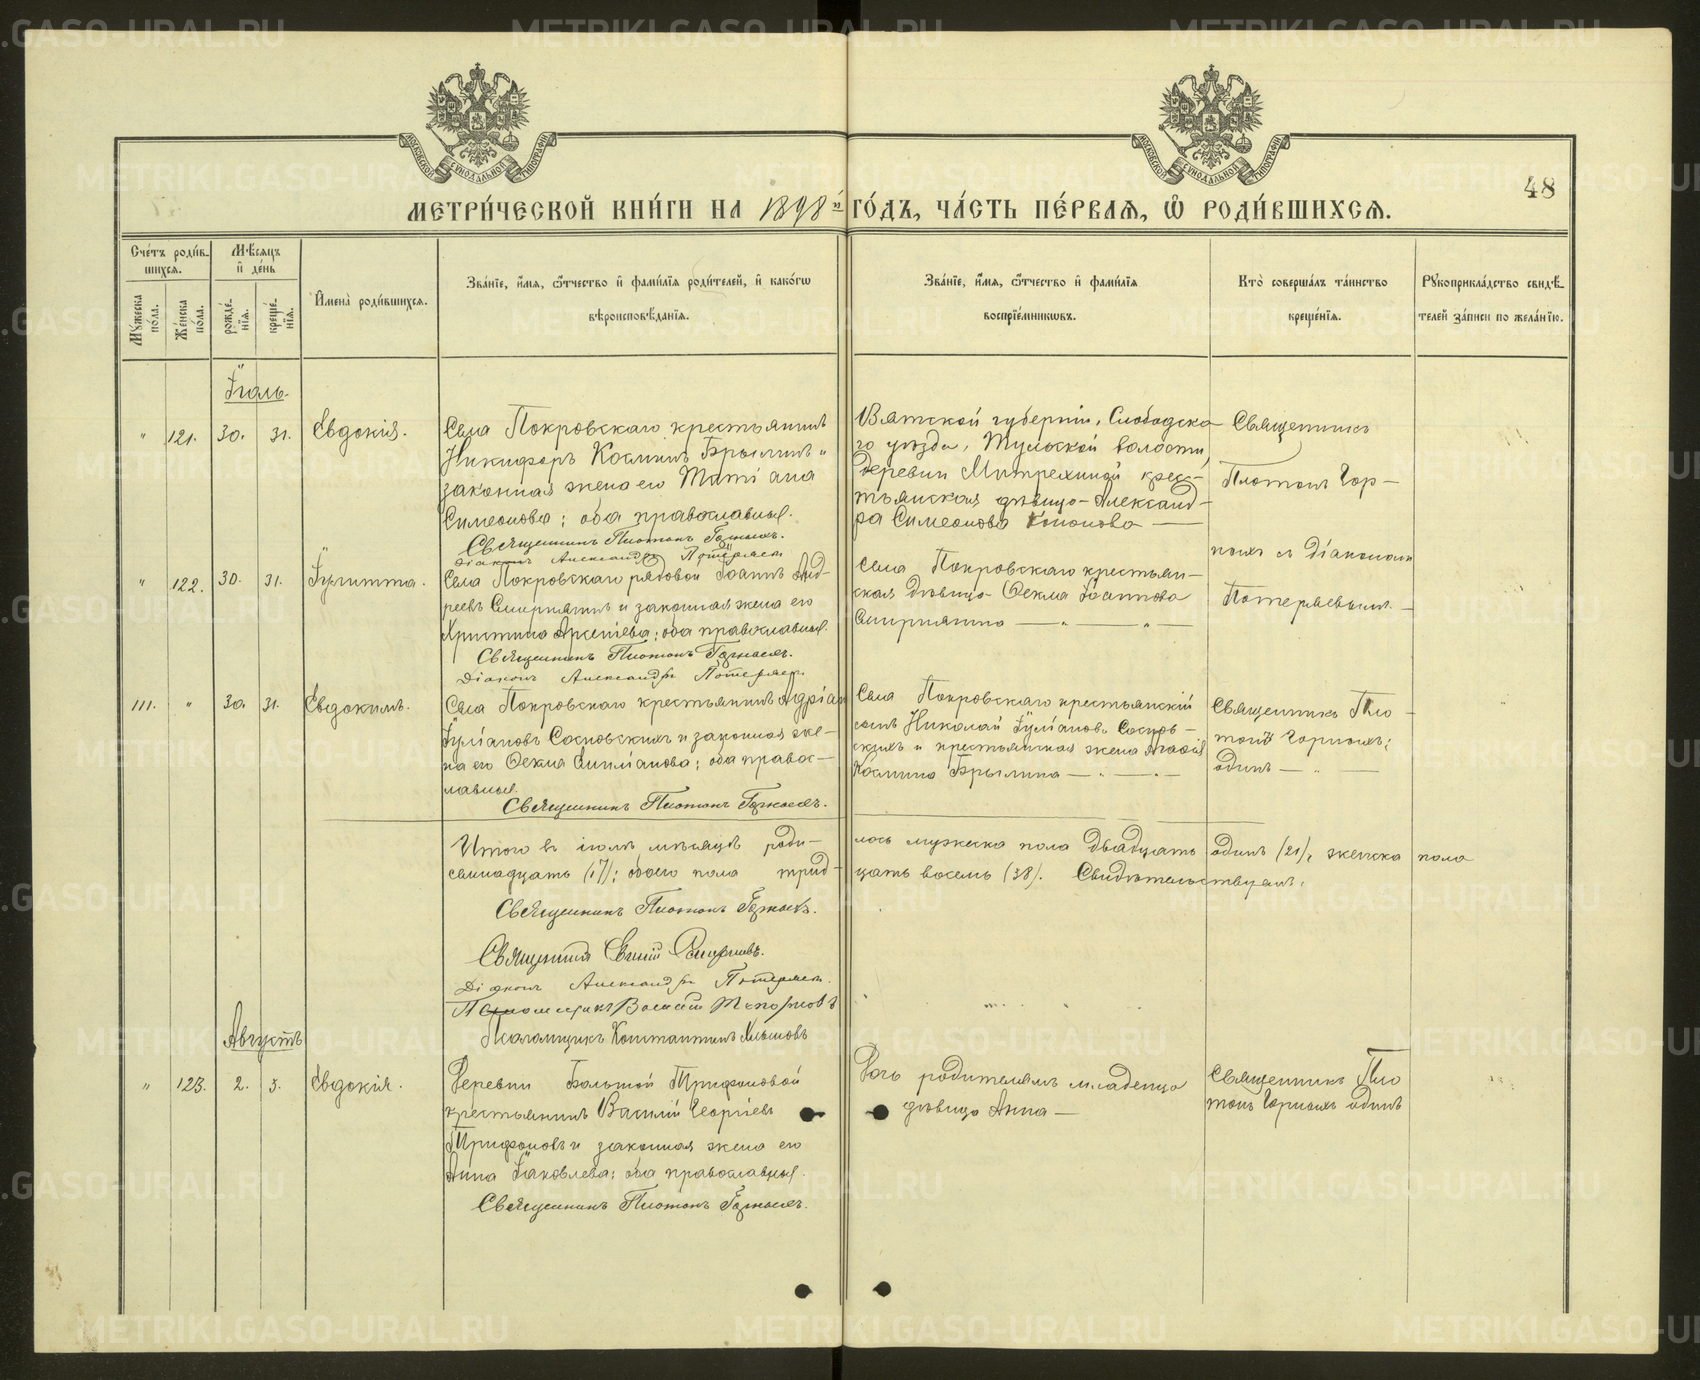 48
МЕТРИ́ЧЕСКОЙ КНИ́ГИ НА 1898й ГО́ДЪ, ЧА́СТЬ ПЕ́РВАЯ, Ѽ РОДИ́ВШИХСЯ.
Сче́тъ роди́в-
шихся.
Мѣ́сяцъ
и҆ де́нь
Му́жеска
по́ла.
Же́нска
по́ла.
рожде́-
нїя.
креще́-
нїя.
И҆мена̀ роди́вшихся.
Зва́нїе, и҆́мя, ѻ҆́тчество и҆ фами́лїя роди́телей, и҆ како́гѡ
вѣроисповѣ́данїя.
Зва́нїе, и҆́мя, ѻ҆́тчество и҆ фами́лїя
воспрїе́мникѡвъ.
Кто̀ соверша́лъ та́инство
креще́нїя.
Рꙋкоприкла́дство свидѣ́-
телей за́писи по жела́нїю.
Іюль
" 121. 30. 31. Евдокія.
Села Покровскаго крестьянинъ
Никифоръ Косминъ Брылинъ и
законная жена его Татіана
Симеонова; оба православные.
Священникъ Платонъ Горныхъ.
Діаконъ Александръ Потеряевъ
Вятской губерніи, Слободска-
го уѣзда, Тульской волости,
деревни Митрехиной крес-
тьянская дѣвица Александ-
ра Симеонова Кононова
Священникъ
Платонъ Гор-
ныхъ съ Діакономъ
Потеряевымъ
" 122. 30. 31. Іулитта.
Села Покровскаго рядовой Іоаннъ Анд-
реевъ Смирнягинъ и законная жена его
Христина Арсеніева; оба православные.
Священникъ Платонъ Горныхъ.
Діаконъ Александръ Потеряевъ
Села Покровскаго крестьян-
ская дѣвица Ѳекла Іоаннова
111. " 30. 31. Евдокимъ.
Села Покровскаго крестьянинъ Адріан
Іуліановъ Сосновскихъ и законная же-
на его Ѳекла; оба правос-
лавные.
Священникъ Платонъ Горныхъ.
Села Покровскаго крестьянскій
сынъ Николай Іуліановъ Соснов-
скихъ и крестьянская жена Агафія
Космина Брылина
Священникъ Пла-
тонъ Горныхъ;
одинъ
Итого въ іюлѣ мѣсяцѣ роди-
лось мужеска пола двадцать одинъ (21), женска пола
семнадцать (17); обоего пола трид-
цать восемь (38). Свидѣтельствуемъ:
Священникъ Платонъ Горныхъ.
Священникъ
Діаконъ Александръ Потеряевъ.
Псаломщикъ Василій Топорковъ
Псаломщикъ Константинъ
Августъ
" 123. 2. 3. Евдокія.
Деревни Большой Трифоновой
крестьянинъ Василій Георгіевъ
Трифоновъ и законная жена его
Анна Іаковлева; оба православные.
Священникъ Платонъ Горныхъ.
родителямъ младенца
дѣвица Анна
Священникъ Пла-
тонъ Горныхъ одинъ
METRIKI.GASO-URAL.RU